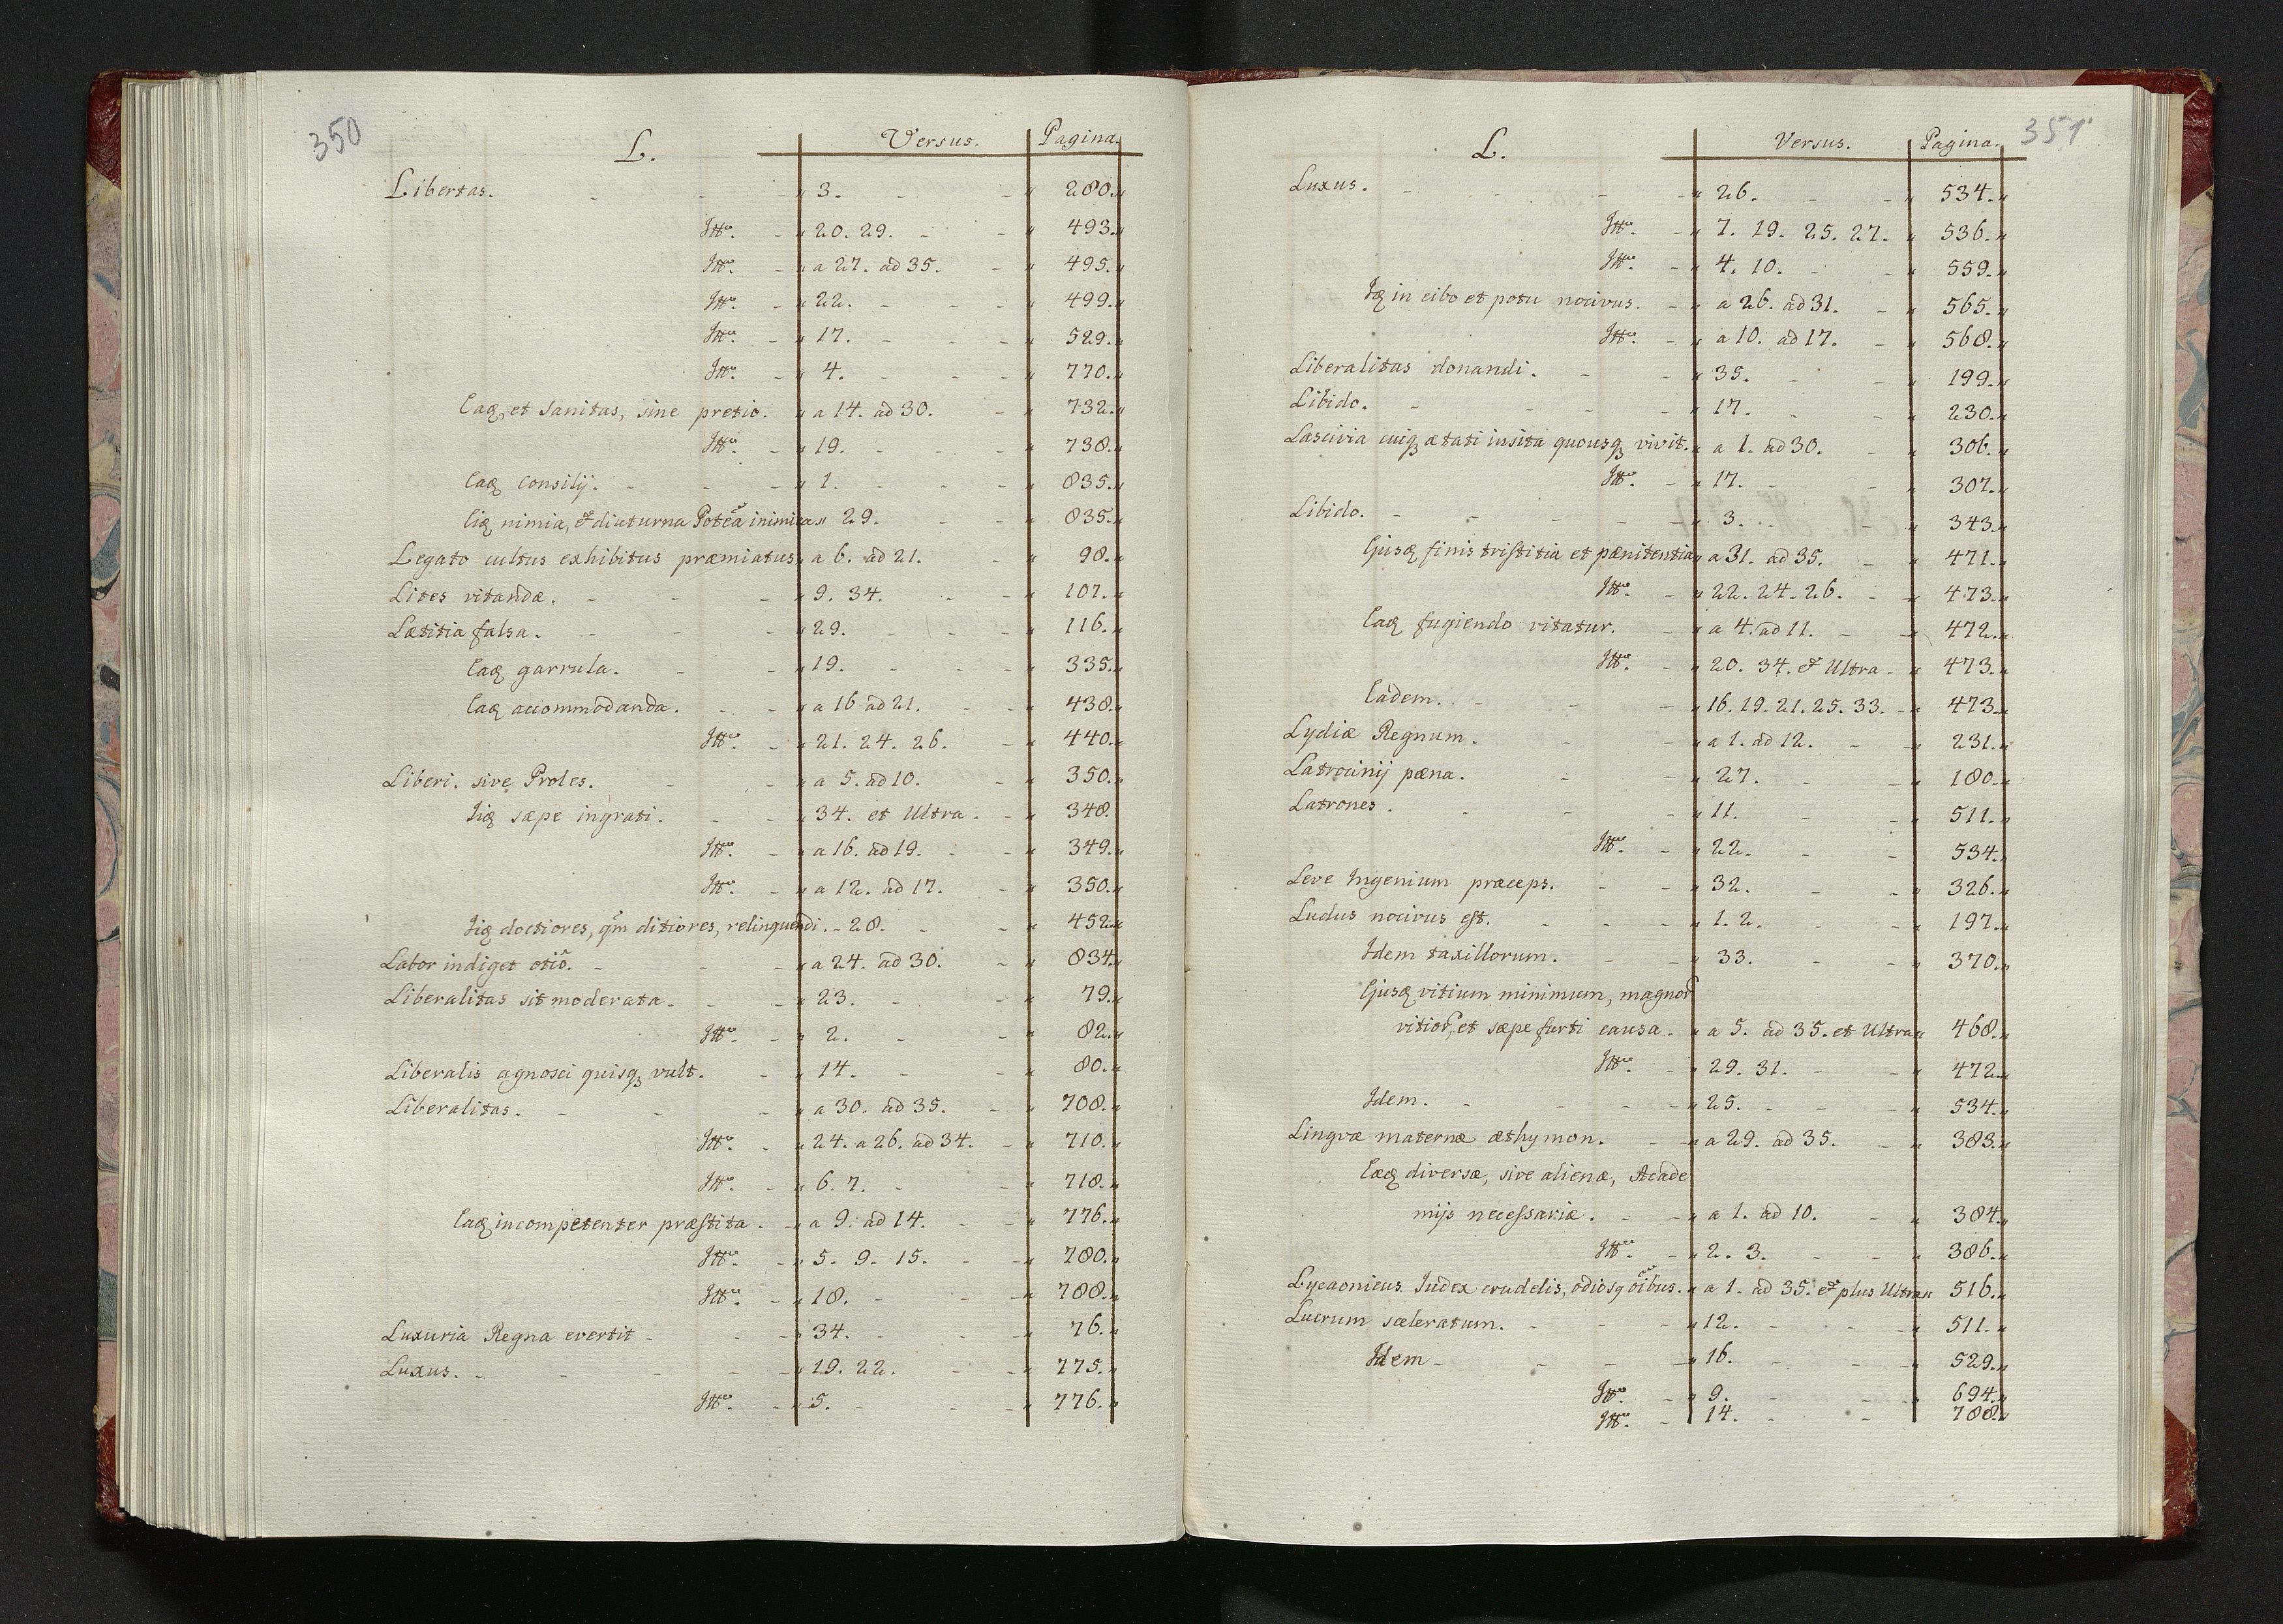 350
L. Versus. Pagina.
Libertas. - - - „ 3. - - „ 280.„
Itto. - „ 20. 29. - - „ 493.„
Itto. - „ a 27. ad 35. - „ 495.„
Itto. - „ 22. - - - „ 499.„
Itto. - „ 17. - - - „ 529.„
Itto. - „ 4. - - - „ 770.„
Eaq, et sanitas, sine pretio. „ a 14. ad 30. - „ 732.„
Itto. - „ 19. - - - „ 738.„
Eaq consilij. - - - „ 1. - - - „ 835.„
nimia, et diuturna Potẽa inimica „ 29. - - „ 835.„
Legato cultus exhibitus præmiatus „ a 6. ad 21. - „ 98.„
Lites vitandæ. - - - „ 9. 34. - - „ 107.„
Lætitia falsa. - - - „ 29. - - - „ 116.„
Eaq garrula. - - „ 19. - - - „ 335.„
Eaq accommodanda. - - „ a 16 ad 21. - - „ 438.„
Itto. - „ 21. 24. 26. - „ 440.„
Liberi. sive Proles. - - „ a 5. ad 10. - „ 350.„
Iiq sæpe ingrati. - - „ 34. et Ultra. - „ 348.
Itto. - „ a 16. ad 19. - - „ 349.„
Itto. - „ a 12. ad 17. - „ 350.„
Iiq doctiores, qm̃ ditiores, relinquendi. - 28. - - „ 452„
Labor indiget otiõ. - - - „ a 24. ad 30. - „ 834„
Liberalitas sit moderata. - - „ 23. - - „ 79.„
Itto. - „ 2. - - „ 82.„
Liberalis agnosci quisq vult. - „ 14. - - „ 80.„
Liberalitas. - - - „ a 30. ad 35. - „ 708.„
Itto. - „ 24. a 26. ad 34. - „ 710.„
Itto. - „ 6. 7. - - „ 718.„
Eaq incompetenter præstita. - „ a 9. ad 14. - - „ 776.„
Itto. - „ 5. 9. 15. - - „ 780.„
Itto. - „ 18. - - - „ 788.„
Luxuria Regna evertit - - - „ 34. - - - „ 76.„
Luxus. - - - - „ 19. 22. - - „ 775.„
Itto. - „ 5. - - - „ 776.„
351
L. Versus. Pagina.
Luxus. - - - - „ 26. - - „ 534.„
Itto. - „ 7. 19. 25. 27. „ 536.„
Itto. - „ 4. 10. - - „ 559.„
Iq in cibo et potu nocivus. - „ a 26. ad 31. - „ 565.„
Itto. - „ a 10. ad 17. - „ 568.„
Liberalitas donandi. - - „ 35. - - „ 199.„
Libido. - - - - „ 17. - - „ 230.„
Lascivia cuiq ætati insita quousq vivit. „ a 1. ad 30. - „ 306.„
Itto. - „ 17. - - „ 307.„
Libido. - - - - - „ 3. - - „ 343.„
Ejusq finis tristitia et pænitentia „ a 31. ad 35. - „ 471.„
Itto. - „ 22. 24. 26. - „ 473.„
Eaq fugiendo vitatur. - „ a 4. ad 11. - „ 472.„
Itto. - „ 20. 34. et Ultra - „ 473.„
Eadem. - - - „ 16. 19. 21. 25. 33. - „ 473.„
Lydiæ Regnum. - - „ a 1. ad 12. - „ 231.„
Latrocinij pæna. - - „ 27. - - „ 180.„
Latrones. - - - „ 11. - - „ 511.„
Itto. - „ 22. - - 534.„
Leve Ingenium præceps. - - „ 32. - - „ 326.„
Ludus nocivus est. - - - „ 1. 2. - - „ 197.„
Idem taxillorum. - - „ 33. - - „ 370.„
Ejusq vitium minimum, magnor
vitior, et sæpe furti causa. - „ a 5. ad 35. et Ultra „ 468.„
Itto. - „ 29. 31. - - „ 472.„
Idem. - - - „ 25. - - „ 534.„
Lingvæ maternæ æthymon. - - „ a 29. ad 35. - „ 383.„
Eæq diversæ, sive alienæ, Acade
mijs necessariæ. - - „ a 1. ad 10. - „ 384„
Itto. - „ 2. 3. - - „ 386.„
Lycaonicus Iudex crudelis, odiosq oĩbus. „ a 1. ad 35. et plus Ultra „ 516.„
Lucrum sceleratum. - - - „ 12. - - - „ 511.„
Idem - - - - „ 16. - - „ 529.„
Itto. - „ 9. - - - 694.„
Itto. - „ 14. - - 788.„